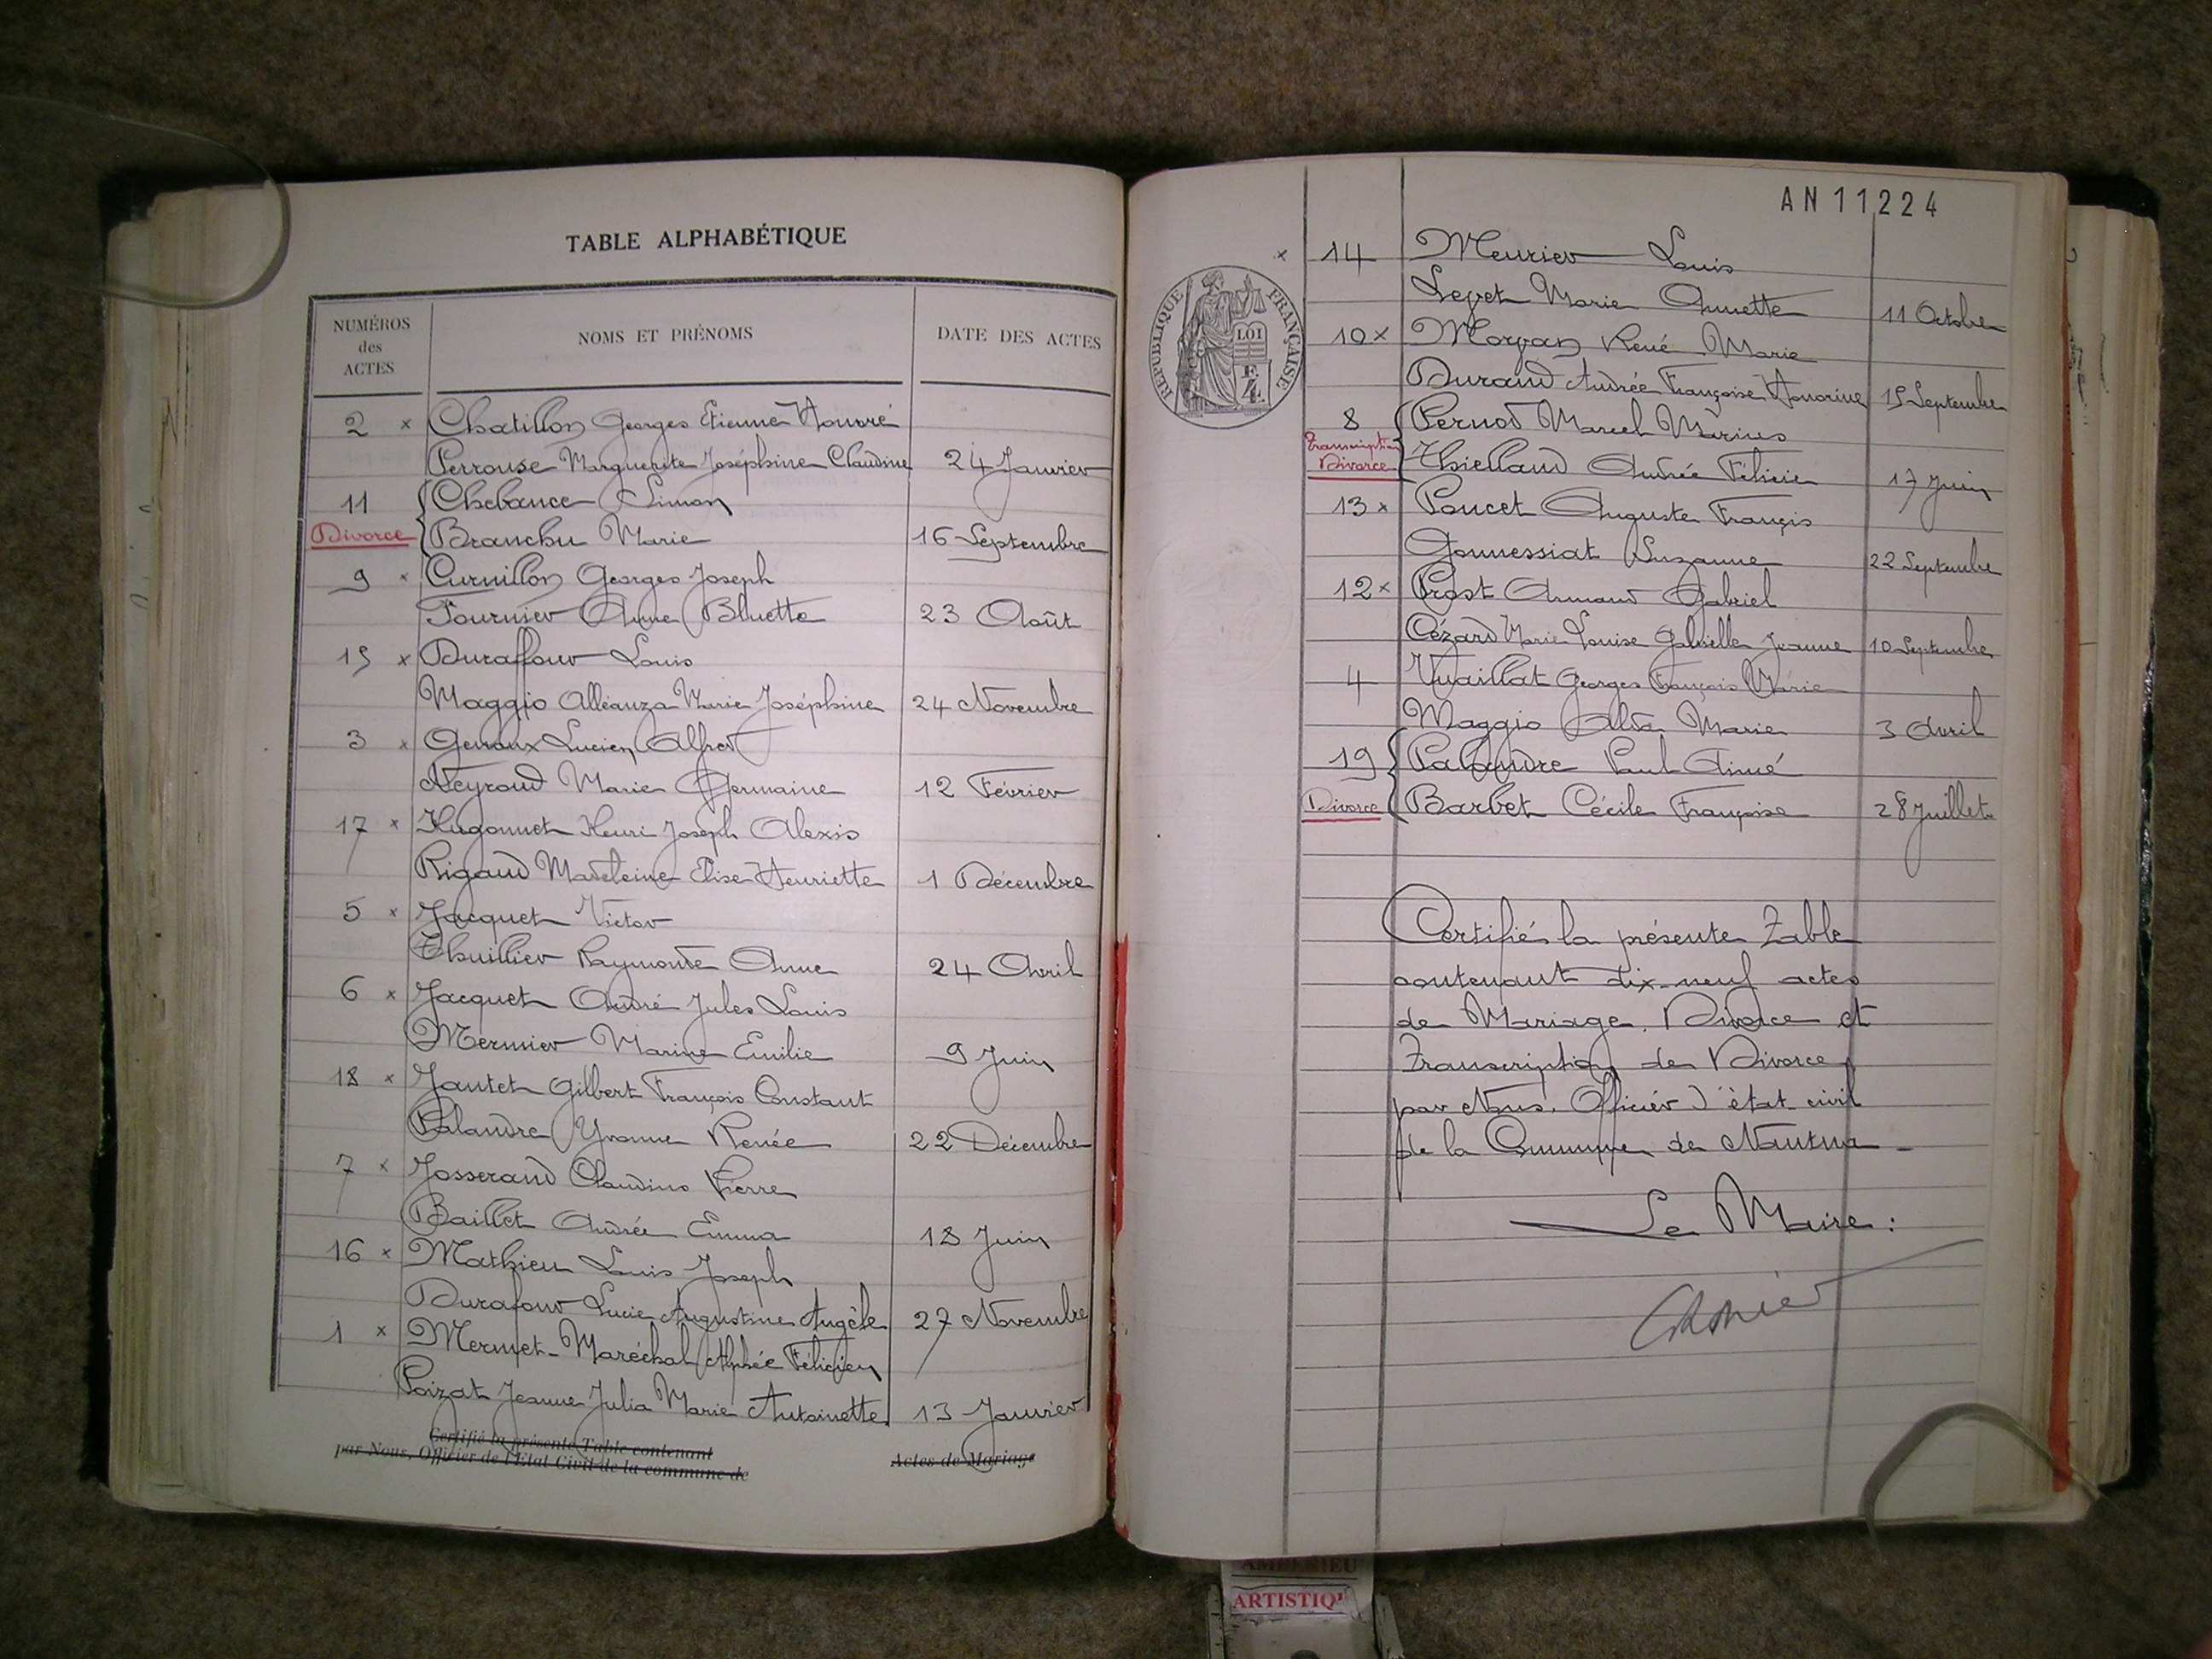 TABLE ALPHABÉTIQUE
NUMÉROS des ACTES NOMS ET PRÉNOMS DATE DES ACTES
2 x Chatillon Georges Etienne Honoré
Perrouse Marguerite Joséphine Claudine 24 Janvier
11 Chebance Simon
Divorce Branchu Marie 16 Septembre
9 x Curvillon Georges Joseph
Tournier Anne Bluette 23 Août
15 x Duraffour Louis
Maggio Alléanza Marie Joséphine 24 Novembre
3 x Genoux Lucien Alfred
Neyroud Marie Germaine 12 Février
17 x Hugonnet Henri Joseph Alexis
Rigaud Madeleine Elise Henriette 1 Décembre
5 x Jacquet Victor
Thuillier Raymonde Anne 24 Avril
6 x Jacquet André Jules Louis
Mermier Marine Emilie 9 Juin
18 x Jantet Gilbert François Constant
Palandre Yvonne Renée 22 Décembre
7 x Josserand Claudius Pierre
Baillet Andrée Emma 18 Juin
16 x Mathieu Louis Joseph
Durafour Lucie Augustine Angèle 27 Novembre
1 x Mermet-Maréchal Alphée Félicien
Poizat Jeanne Julia Marie Antoinette 13 Janvier
Certifié la présente Table contenant Actes de Mariage
par Nous, Officier de l'Etat Civil de la commune de
AN 11224
RÉPUBLIQUE FRANÇAISE
LOI
F. 4
x 14 Meurier Louis
Legret Marie Annette 11 Octobre
10 x Morvan René Marie
Durand Andrée Françoise Honorine 15 Septembre
8 Pernod Marcel Marius
Transcription Divorce Thielland Andrée Félicie 17 Juin
13 x Poncet Auguste François
Gonnessiat Suzanne 22 Septembre
12 x Prost Armand Gabriel
Cézard Marie Louise Gabrielle Jeanne 10 Septembre
4 Vuaillat Georges François Marie
Maggio Alda Marie 3 Avril
19 Palandre Paul Aimé
Divorce Barbet Cécile Françoise 28 Juillet
Certifié la présente Table
contenant dix-neuf actes
de Mariage, Divorce et
Transcription de Divorce
par Nous, Officier d'état civil
de la Commune de Nantua -
Le Maire :
ARTISTIQU